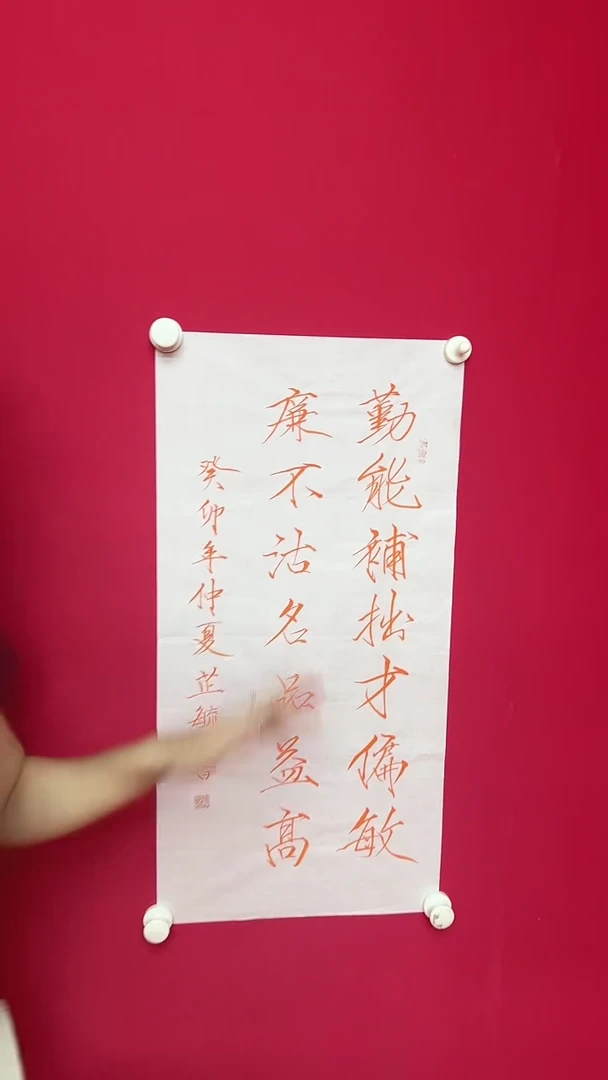 勤能補拙才偏敏
廉不沽名品益高
癸卯年仲夏芷毓